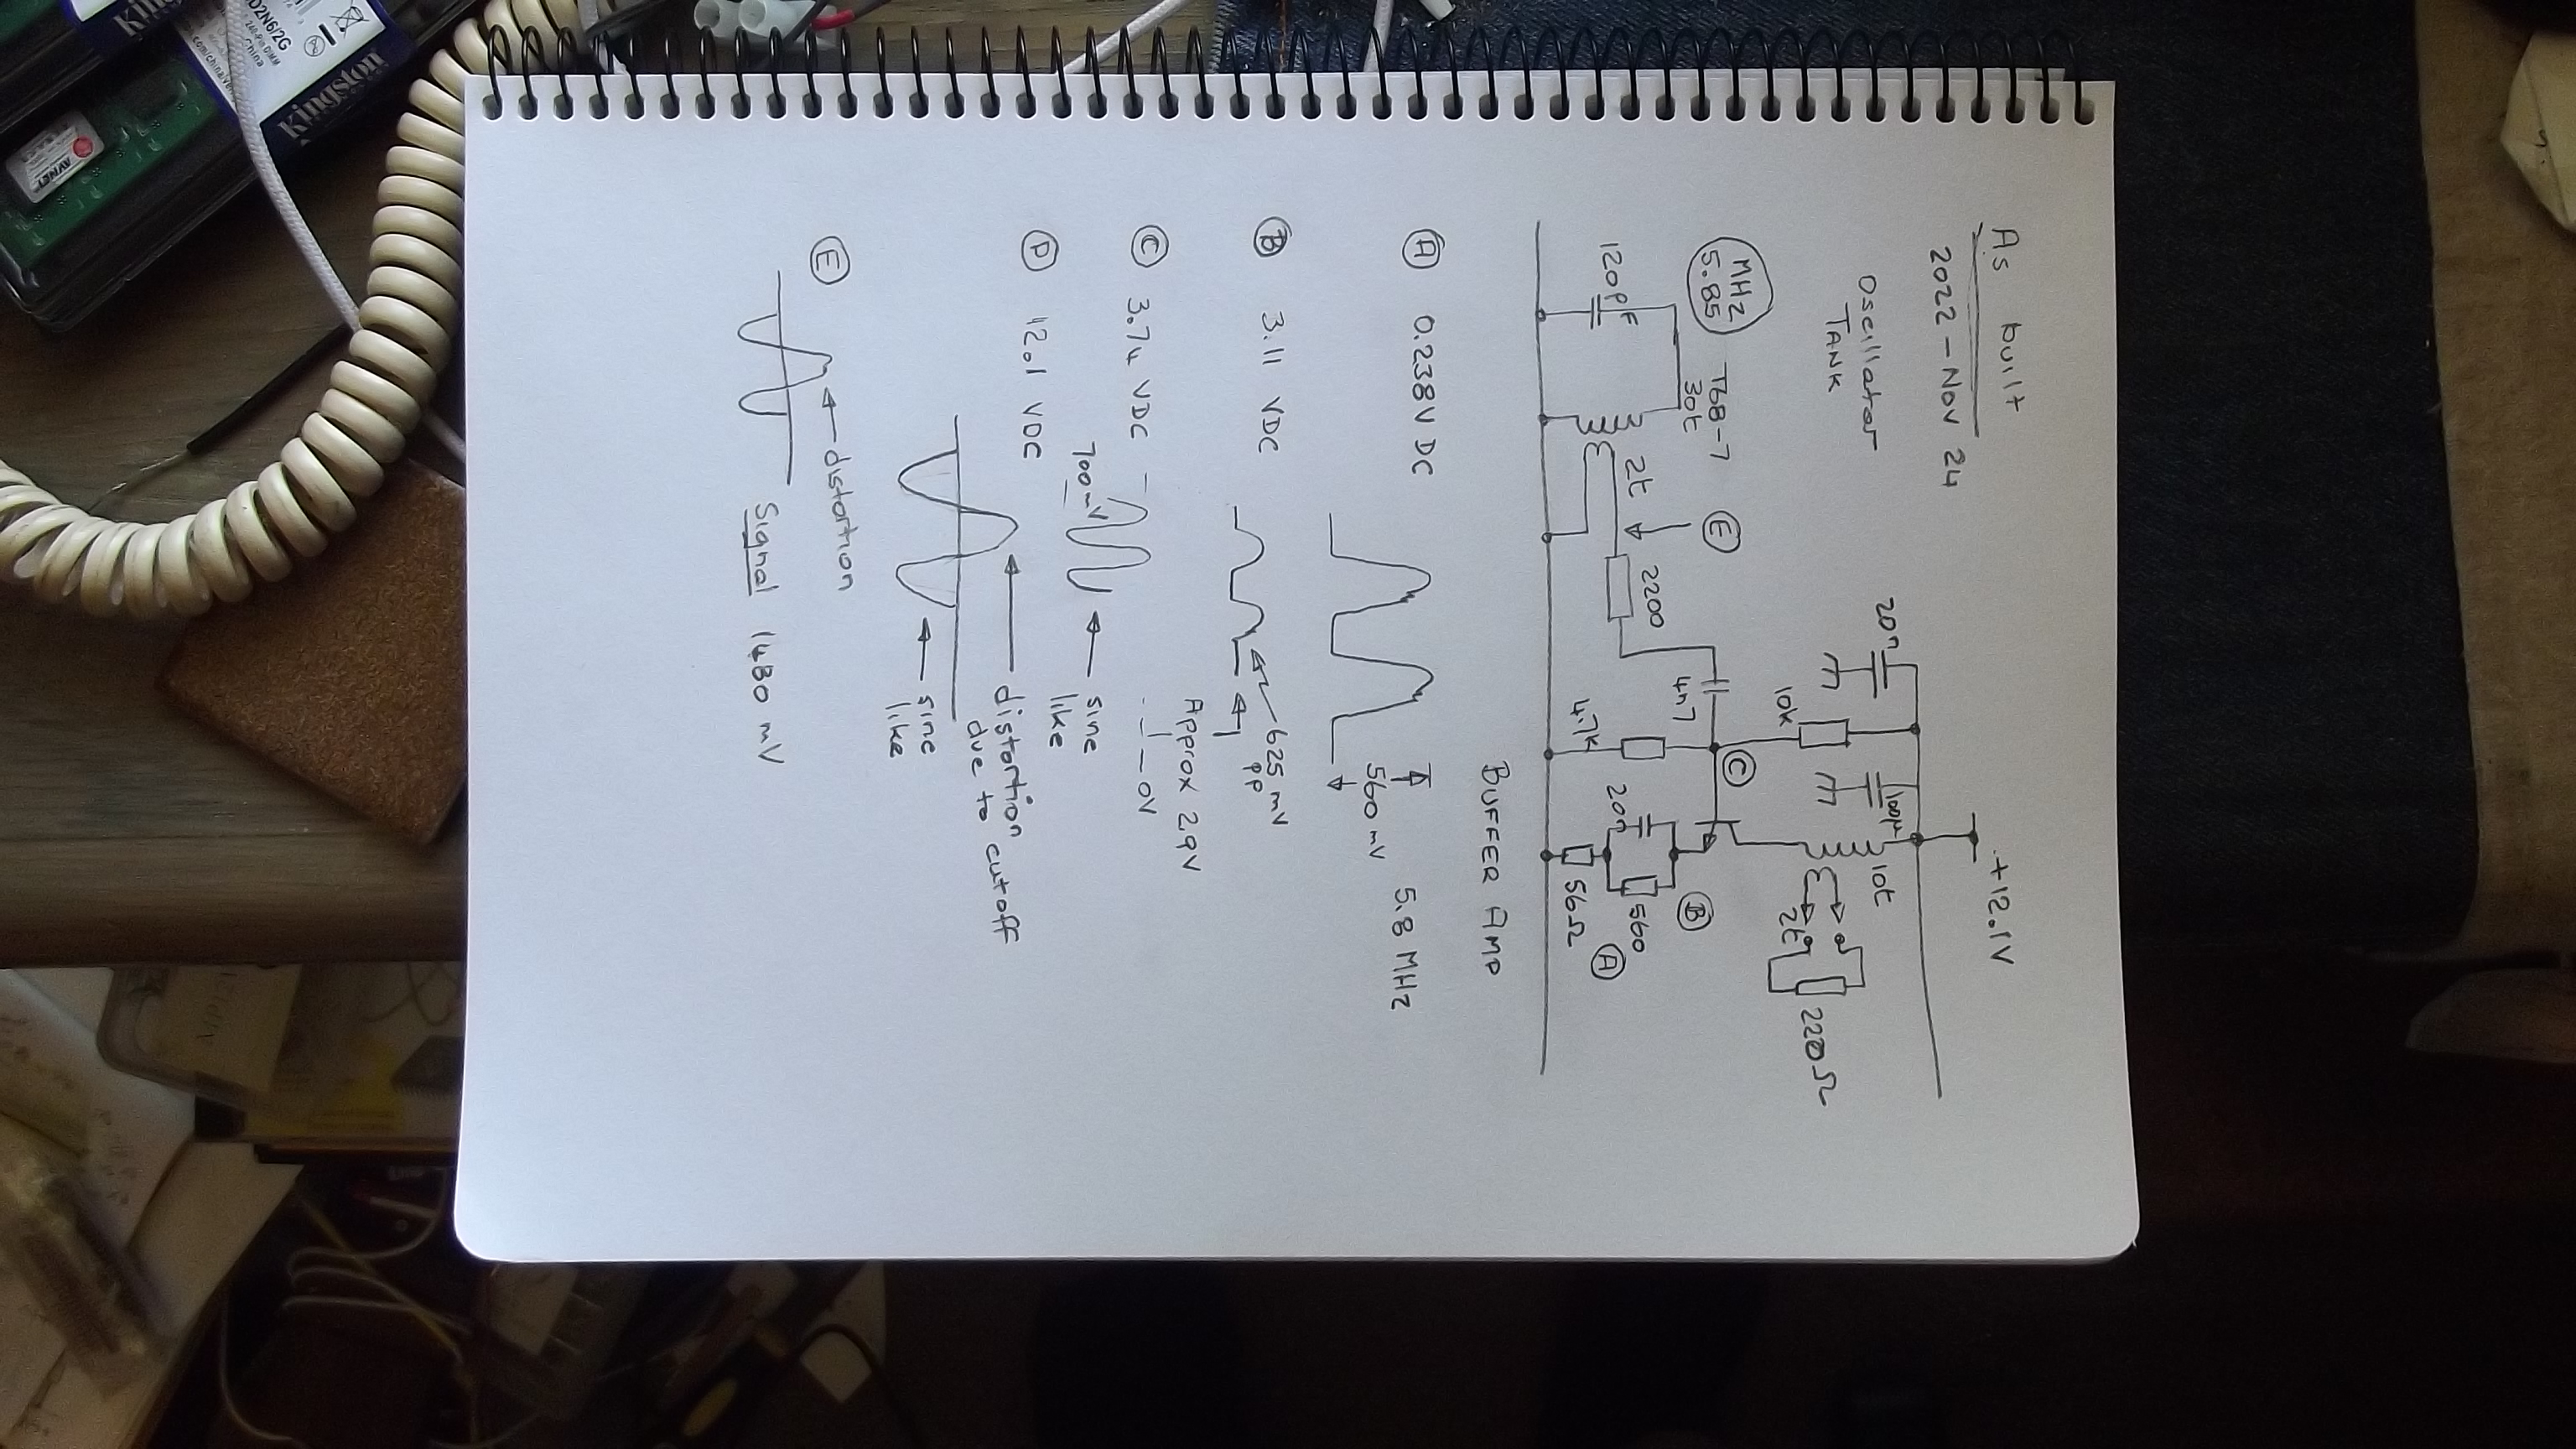 As built
2022-Nov 24
Oscillator
TANK
MHz
5.85
T68-7
30t
120pF
2t
E
2200
4n7
20n
10k
100µ
10t
+12.1V
2t
220Ω
C
4.7k
20n
560
B
56Ω
A
BUFFER AMP
A 0.238V DC
560 mV
5.8 MHz
B 3.11 VDC
625 mV
PP
Approx 2.9V
C 3.74 VDC
0V
700mV
sine
like
D 12.1 VDC
distortion
due to cutoff
sine
like
E
distortion
Signal 1480 mV
Kingston
D2N6/2G
240-Pin DIMM
China
Kingston
AVNET